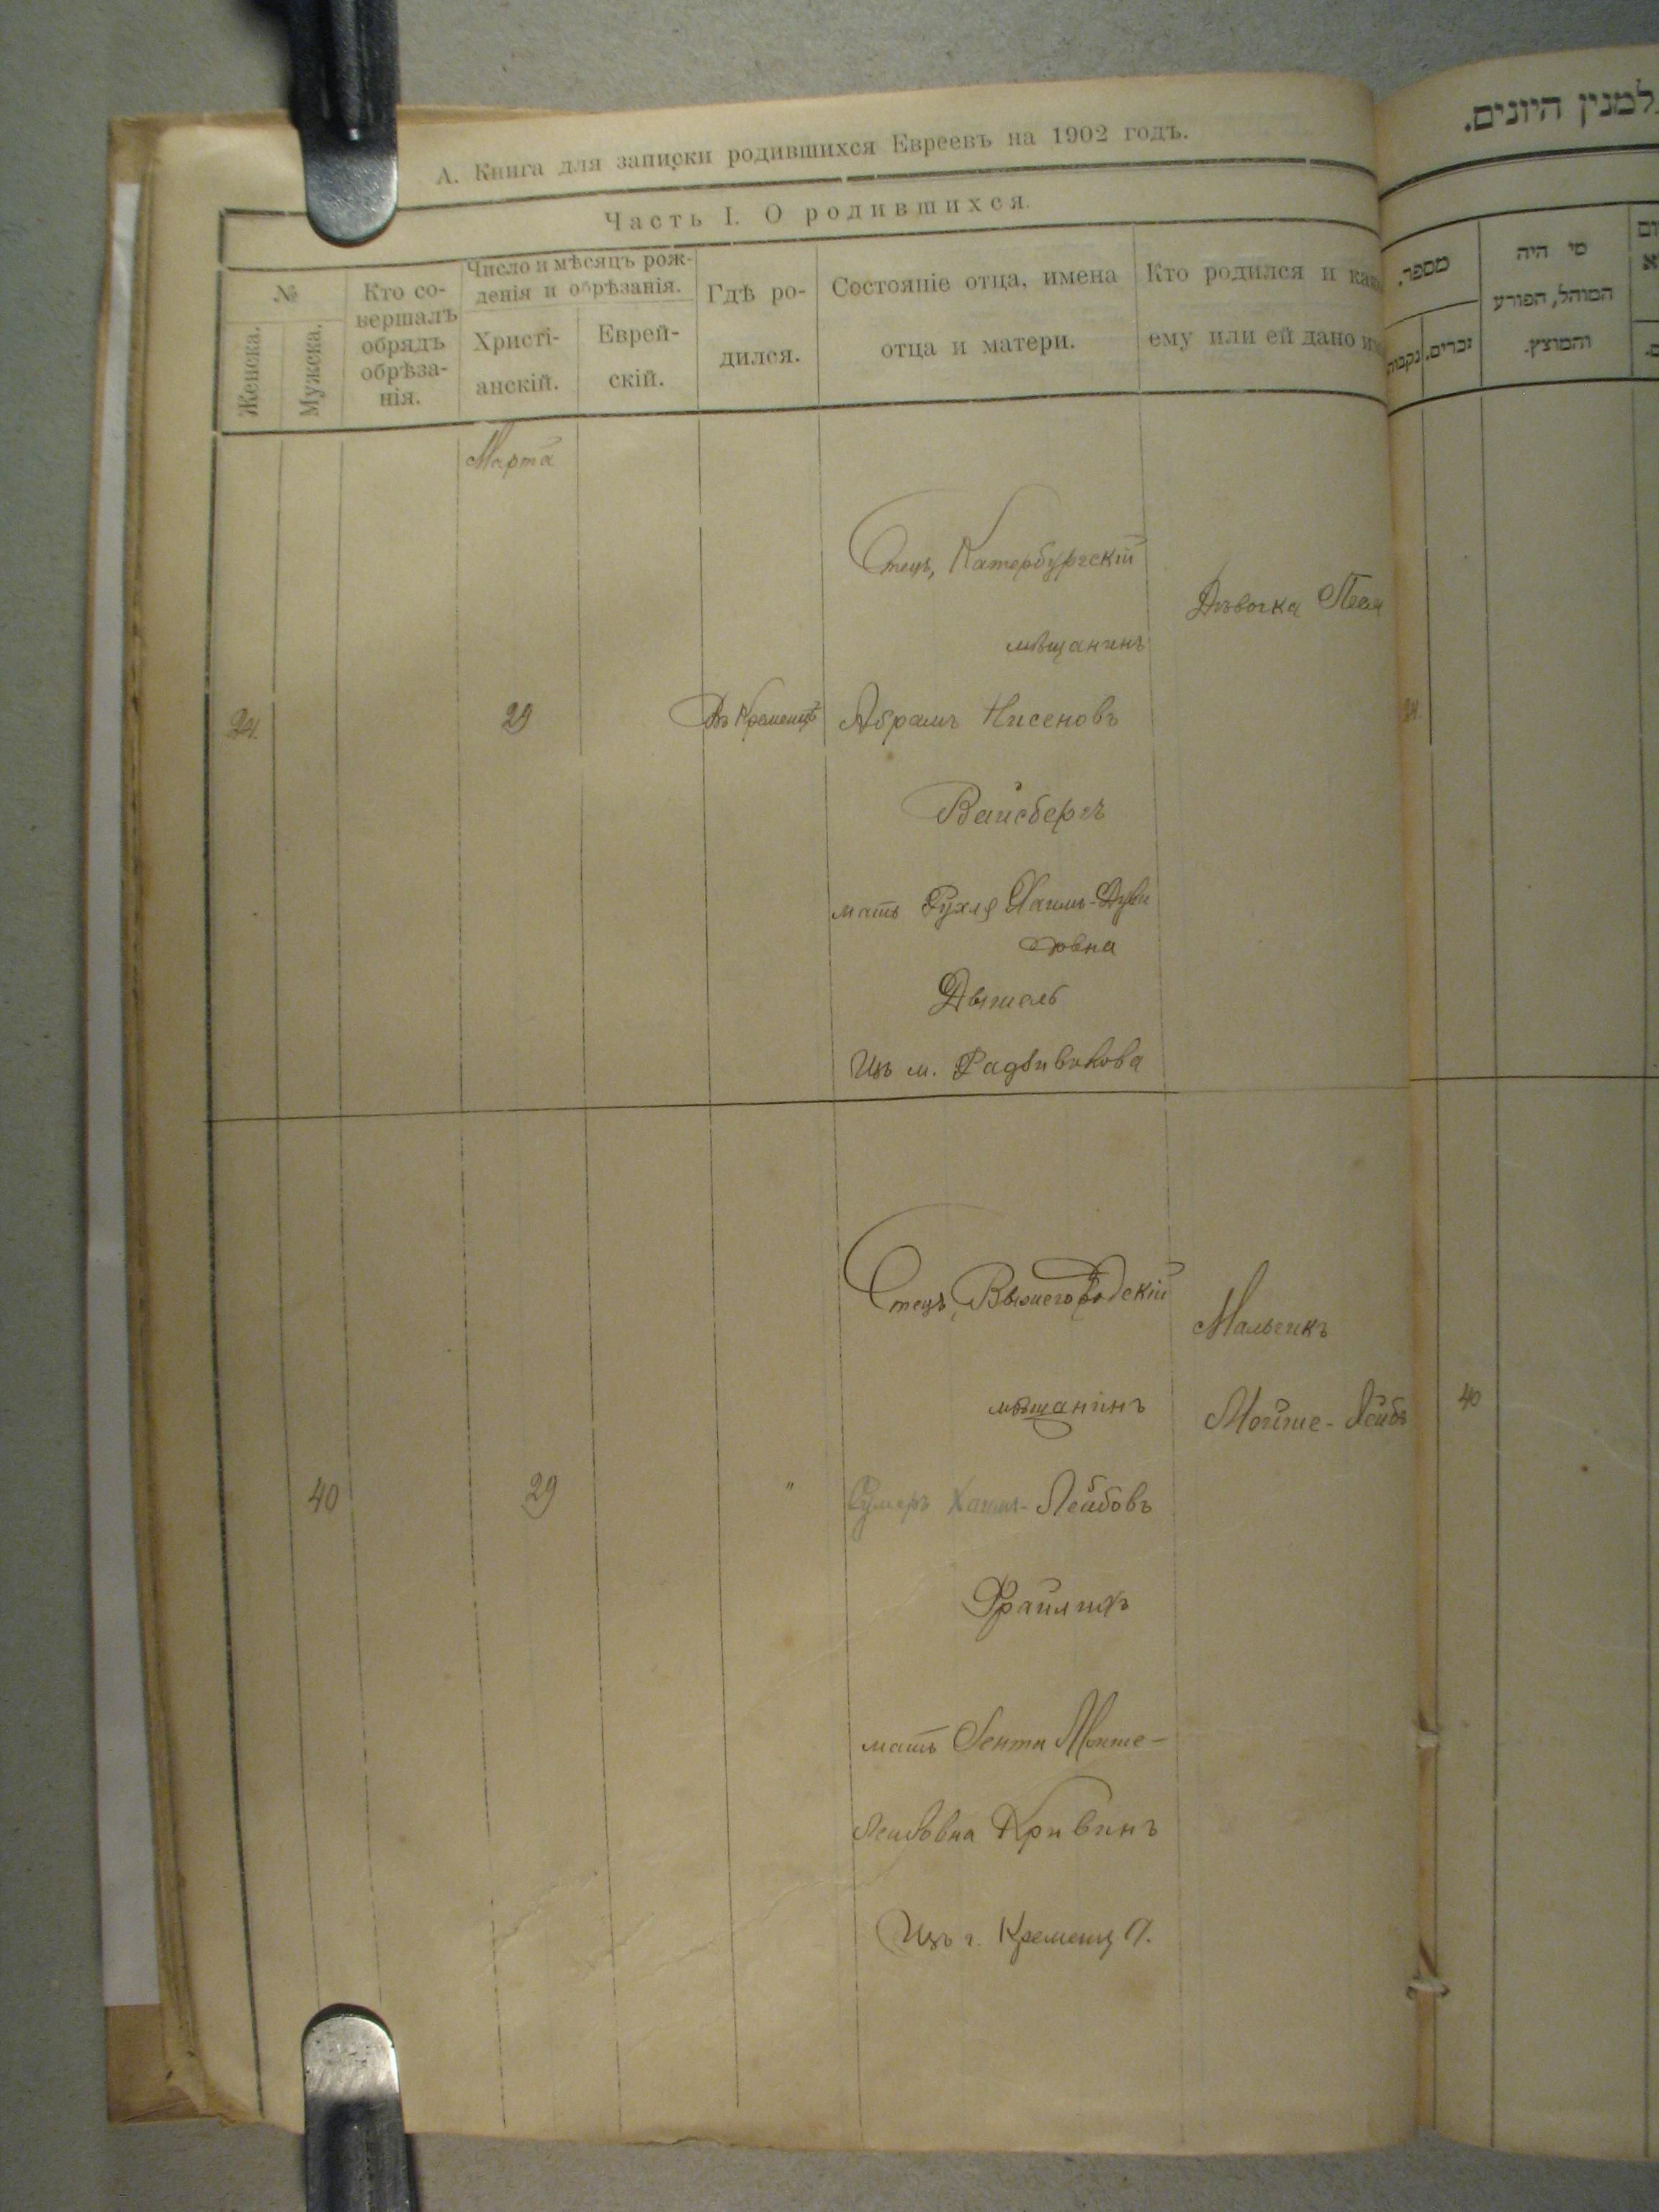 А. Книга для записки родившихся Евреевъ на 1902 годъ.
Часть I. О родившихся.
№
Женска.
Мужска.
Кто со-
вершалъ
обрядъ
обрѣза-
нія.
Число и мѣсяцъ рож-
денія и обрѣзанія.
Христі-
анскій.
Еврей-
скій.
Гдѣ ро-
дился.
Состояніе отца, имена
отца и матери.
Кто родился и как
ему или ей дано им
Марта
Отецъ, Катербургскій
мѣщанинъ
24.
29
Въ Кременцѣ
Абрамъ Нисеновъ
Вайсбергъ
мать Рухля Хаимъ-Дуви
довна
Из м. Радзивилова
Дѣвочка
Отецъ, Вышегородскій
мѣщанинъ
40
29
"
Сумеръ Хаимъ-Лейбовъ
Фрайлихъ
мать Гента Мойше-
Лейбовна Кривинъ
Изъ г. Кременца.
Мальчикъ
Мойше-Лейбъ
למנין היונים.
מספר.
זכרים.
נקבות
מי היה
המוהל, הפורע
והמוצץ.
24.
40